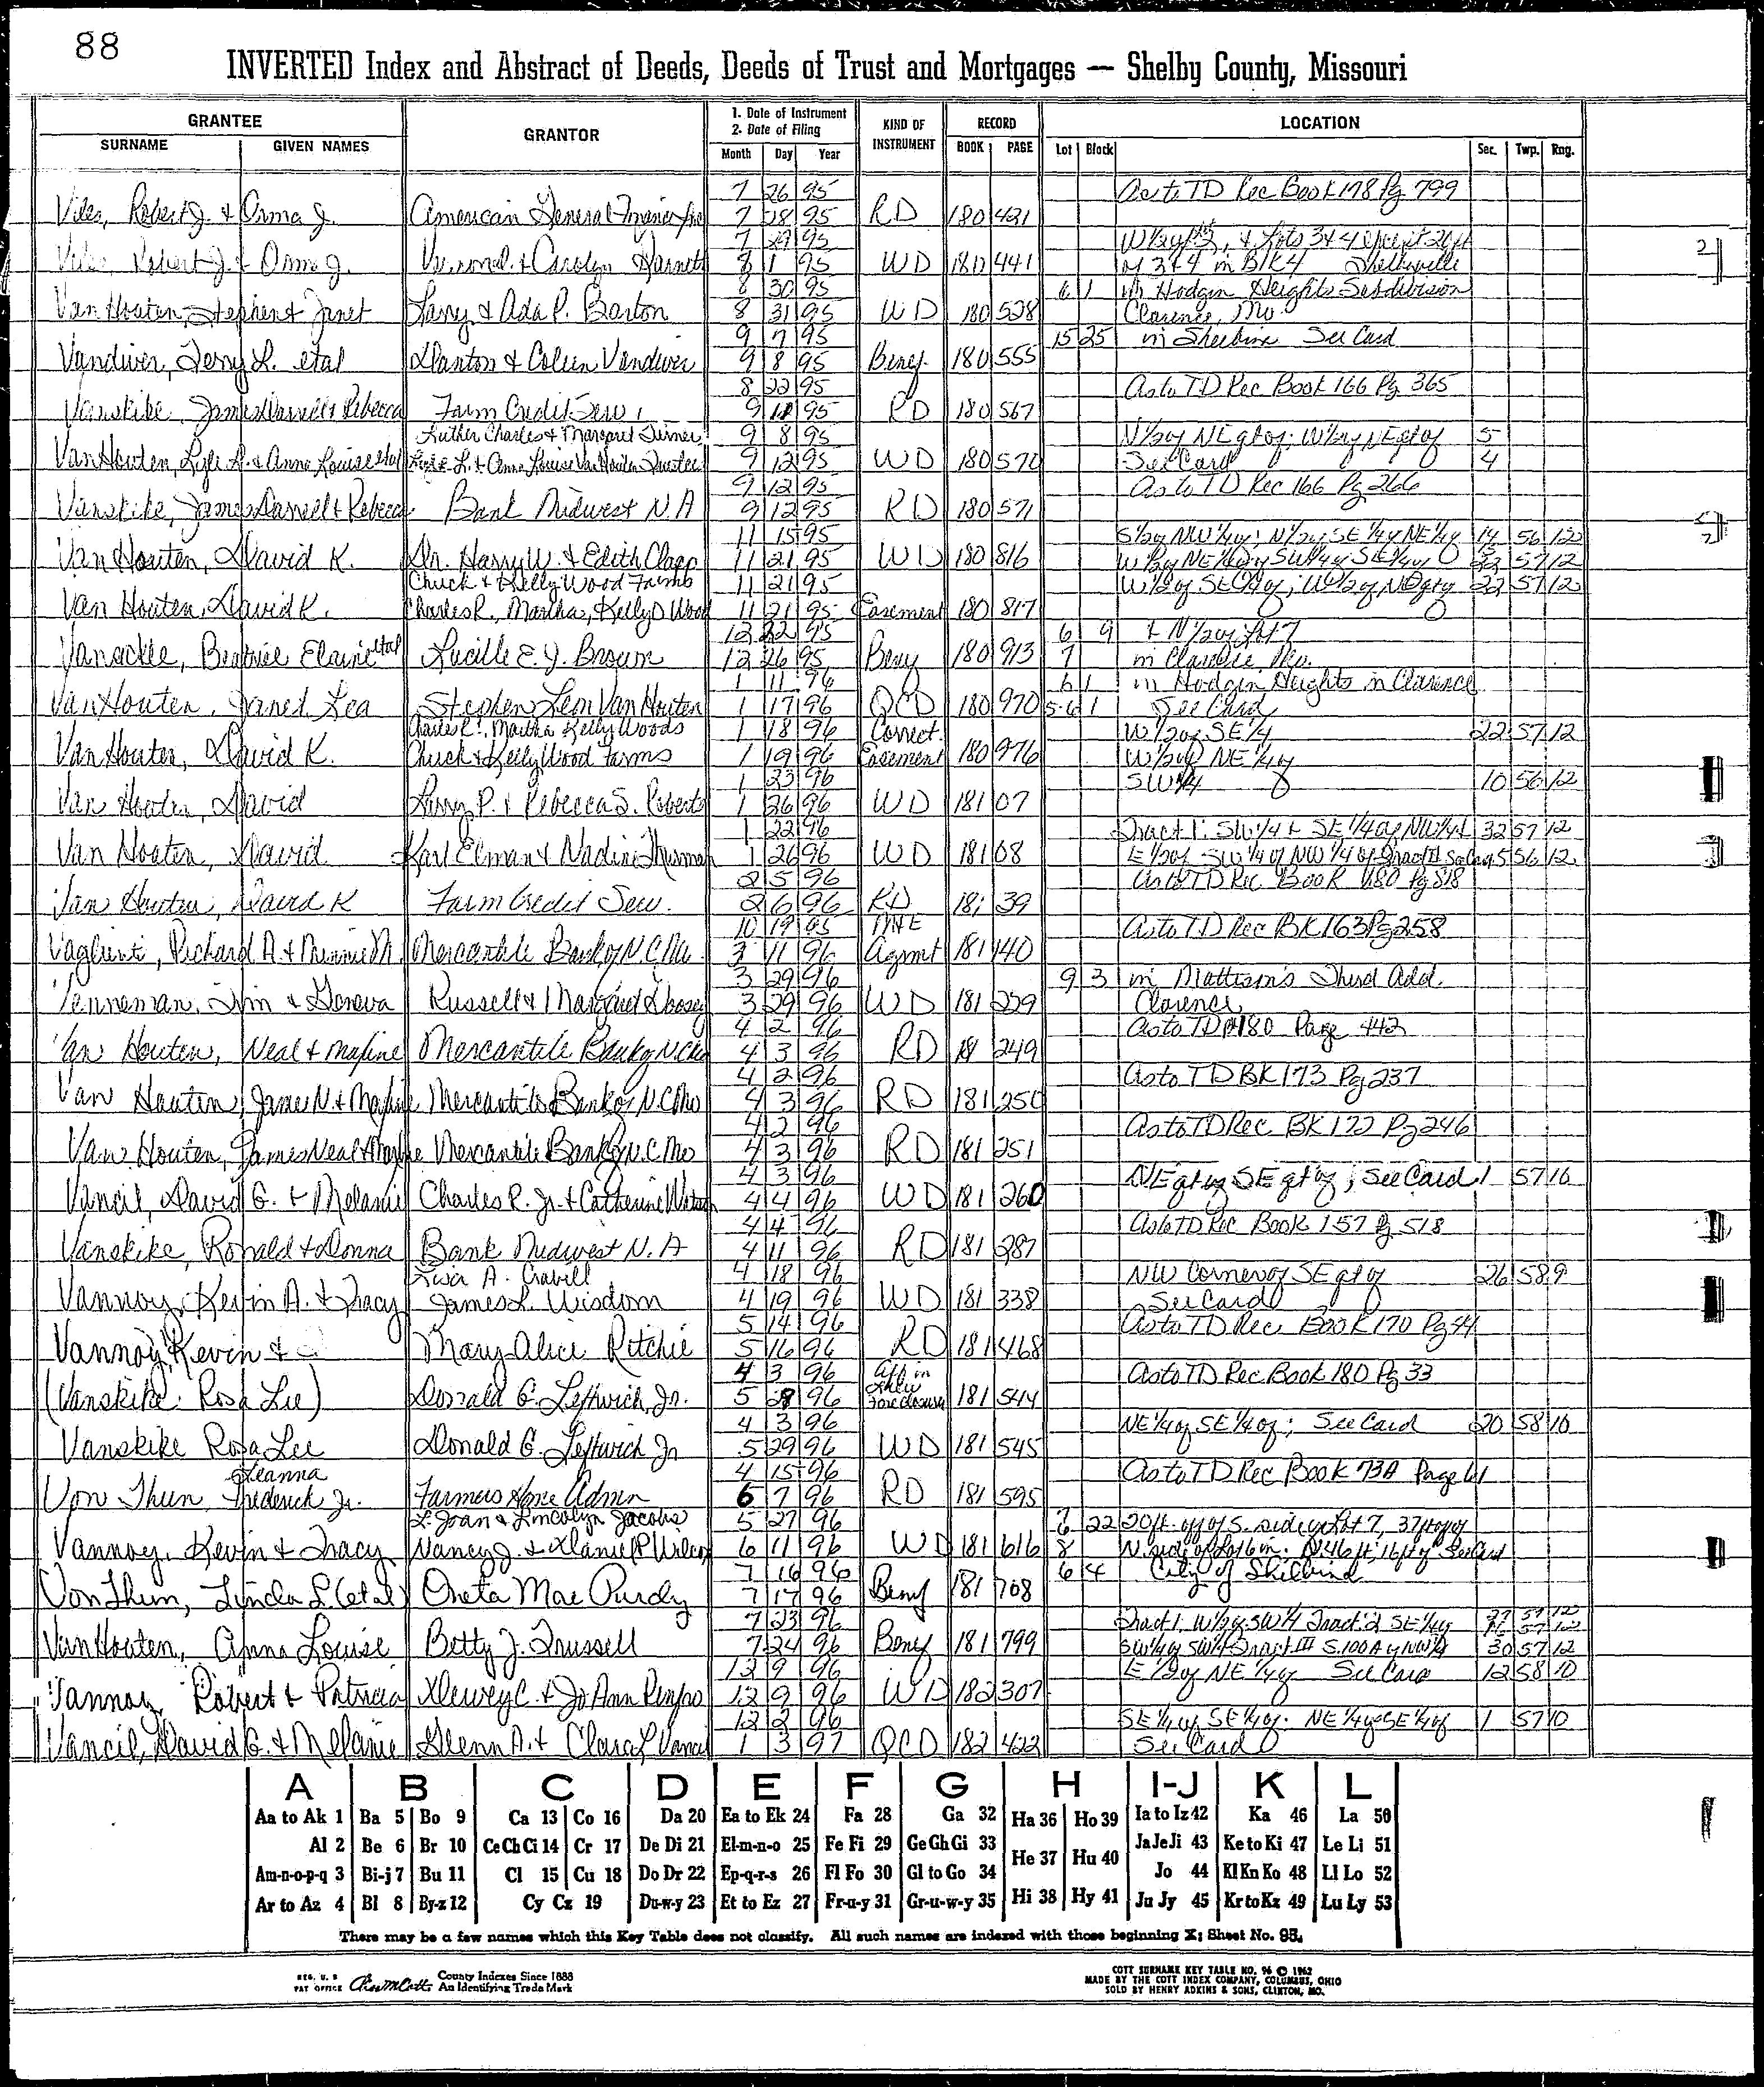 88
INVERTED Index and Abstract of Deeds, Deeds of Trust and Mortgages — Shelby County, Missouri
GRANTEE
SURNAME GIVEN NAMES
GRANTOR
1. Date of Instrument
2. Date of Filing
Month Day Year
KIND OF INSTRUMENT
RECORD
BOOK PAGE
LOCATION
Lot Block Sec. Twp. Rng.
7 26 95 As to TD Rec Book 178 Pg 799
Viles, Robert J. & Orma J. American General Finance Inc 7 28 95 RD 180 421
7 29 95
Viles Robert J. & Orma J. & Carolyn 8 1 95 WD 180 441 of 3 & 4 in Blk 4 Shelbyville
8 30 95 6 1 in Hodgin Heights Subdivision
Van Houten, Stephen & Janet Larry & Ada P. Barton 8 31 95 WD 180 528 Clarence, Mo.
9 7 95 15 25 in Shelbina See Card
Vandiver, Terry L. etal Danton & Coleen Vandiver 9 8 95 Beney. 180 555
8 22 95 As to TD Rec Book 166 Pg 365
Vanskike, James Darrell & Rebecca Farm Credit Serv. 9 11 95 RD 180 567
Luther Charles & Margaret Turner; 9 8 95 N1/2 of NE qt of; W1/2 of NE qt of 5
Van Houten, Lyle L. & Anna Louise etal Lyle L. & Anna Louise Van Houten Trustee 9 12 95 WD 180 570 See Card 4
9 12 95 As to TD Rec 166 Pg 266
Vanskike, James Darrell & Rebecca Bank Midwest N.A 9 12 95 RD 180 571
11 15 95 S1/2 of NW 1/4 of; N1/2 of SE 1/4 of NE 1/4 of 14 56 12
Van Houten, David K. Dr. Harry W. & Edith Clapp 11 21 95 WD 180 816 57 12
Chuck & Kelly Wood Farms 11 21 95 W1/2 of SE qt of; W1/2 of NE qt of 22 57 12
Van Houten, David K. Charles R., Martha, Kelly D Wood 11 21 95 Easement 180 817
12 22 95 6 9 & N1/2 of Lot 7
Vanackle, Beatrice Elaine etal Lucille E. Y. Brown 12 26 95 Beney 180 913 7 in Clarence Mo.
1 11 96 6 1 in Hodgin Heights in Clarence
Van Houten, Janet Lea Stephen Lem Van Houten 1 17 96 QCD 180 970 5-6 1 See Card
Charles R., Martha Kelly Woods 1 18 96 Correct. W1/2 of SE 1/4 22 57 12
Van Houten, David K. Chuck & Kelly Wood Farms 1 19 96 Easement 180 976 W1/2 of NE 1/4 of
1 23 96 SW 1/4 10 56 12
Van Houten, David Larry P. & Rebecca S. Roberts 1 26 96 WD 181 07
1 22 96 Tract 1: SW 1/4 & SE 1/4 of NW 1/4 & 32 57 12
Van Houten, David Karl Elman & Nadine Thurman 1 26 96 WD 181 08 E 1/2 of SW 1/4 of NW 1/4 of Tract II 5 56 12
2 5 96 As to TD Rec Book 180 Pg 818
Van Houten, David K Farm Credit Serv. 2 6 96 RD 181 39
10 19 95 As to TD Rec BK 163 Pg 258
Richard A. & Minnie M. Mercantile Bank of N.C. Mo. 3 11 96 Agmt 181 140
3 29 96 9 3 in Mattison's Third Add.
Venneman, Jim & Geneva Russell & Margaret 3 29 96 WD 181 229 Clarence
4 2 96 As to TD 180 Page 442
Van Houten, Neal & Maxine Mercantile Bank of N.C. Mo 4 3 96 RD 181 249
4 2 96 As to TD BK 173 Pg 237
Van Houten, James N. & Maxine Mercantile Bank of N.C. Mo 4 3 96 RD 181 250
4 2 96 As to TD Rec BK 122 Pg 246
Van Houten, James Neal & Maxine Mercantile Bank of N.C. Mo 4 3 96 RD 181 251
4 3 96 NE qt of SE qt of; See Card 1 57 10
Vancil, David G. & Melanie Charles R. Jr. & Catherine 4 4 96 WD 181 260
4 4 96 As to TD Rec Book 157 Pg 518
Vanskike, Ronald & Donna Bank Midwest N.A 4 11 96 RD 181 287
A. Cravell 4 18 96 NW Corner of SE qt of 26 58 9
Vannoy, Kevin A. & Tracy James L. Wisdom 4 19 96 WD 181 338 See Card
5 14 96 As to TD Rec Book 170 Pg 44
Vannoy, Kevin & Mary Alice Ritchie 5 16 96 RD 181 468
4 3 96 Aff in As to TD Rec Book 180 Pg 33
(Vanskike, Rosa Lee) Donald G. Leftwich, Jr. 5 28 96 Lieu Foreclosure 181 544
4 3 96 NE 1/4 of SE 1/4 of; See Card 20 58 10
Vanskike Rosa Lee Donald G. Leftwich Jr 5 29 96 WD 181 545
Deanna 4 15 96 As to TD Rec Book 73A Page 61
Von Thun, Frederick Jr. Farmers Home Admn 6 7 96 RD 181 595
L. Joan & Lincolyn Jacobs 5 27 96 7 22 20 ft. off of S. side of Lot 7, 37 ft of
Vannoy, Kevin & Tracy Nancy J. & Daniel P Wilcox 6 11 96 WD 181 616 8 See Card
7 16 96 6 4 City of Shelbina
Von Thun, Linda L. (etal) Oreta Mae Purdy 7 17 96 Beney 181 768
7 23 96 Tract 1. W1/2 of SW 1/4 Tract 2 SE 1/4 of 57 12
Van Houten, Anna Louise Betty J. Trussell 7 24 96 Beney 181 799 SW 1/4 of SW 1/4 Tract III S. 100 A of NW 1/4 30 57 12
12 9 96 E 1/2 of NE 1/4 of See Card 12 58 10
Vannoy Robert & Patricia Dewey C. & Jo Ann Renfro 12 9 96 WD 182 307
12 2 96 SE 1/4 of SE 1/4 of; NE 1/4 of SE 1/4 of 1 57 10
Vancil, David G. & Melanie Glenn A. & Clara L Vancil 1 3 97 QCD 182 422 See Card
A B C D E F G H I-J K L
Aa to Ak 1 Ba 5 Bo 9 Ca 13 Co 16 Da 20 Ea to Ek 24 Fa 28 Ga 32 Ha 36 Ho 39 Ia to Iz 42 Ka 46 La 50
Al 2 Be 6 Br 10 Ce Ch Ci 14 Cr 17 De Di 21 El-m-n-o 25 Fe Fi 29 Ge Gh Gi 33 He 37 Hu 40 Ja Je Ji 43 Ke to Ki 47 Le Li 51
Am-n-o-p-q 3 Bi-j 7 Bu 11 Cl 15 Cu 18 Do Dr 22 Ep-q-r-s 26 Fl Fo 30 Gl to Go 34 Jo 44 Kl Kn Ko 48 Ll Lo 52
Ar to Az 4 Bl 8 By-z 12 Cy Cz 19 Du-w-y 23 Et to Ez 27 Fr-u-y 31 Gr-u-w-y 35 Hi 38 Hy 41 Ju Jy 45 Kr to Kz 49 Lu Ly 53
There may be a few names which this Key Table does not classify. All such names are indexed with those beginning X; Sheet No. 95.
REG. U. S. PAT OFFICE County Indexes Since 1888 An Identifying Trade Mark
COTT SURNAME KEY TABLE NO. 96 © 1962
MADE BY THE COTT INDEX COMPANY, COLUMBUS, OHIO
SOLD BY HENRY ADKINS & SONS, CLINTON, MO.